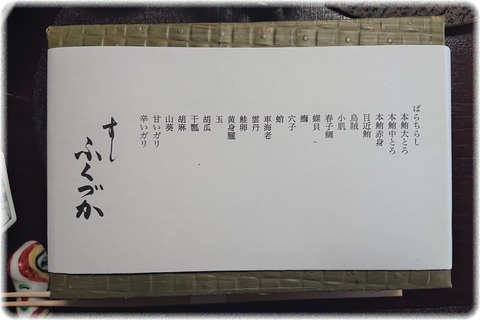 ばらちらし
本鮪大とろ
本鮪中とろ
本鮪赤身
目近鮪
烏賊
小肌
春子鯛
螺貝
鰤
穴子
蛸
車海老
雲丹
鮭卵
黄身朧
玉
胡瓜
干瓢
胡麻
山葵
甘いガリ
辛いガリ
すし
ふくづか